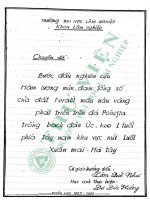 TRƯỜNG ĐẠI HỌC LÂM NGHIỆP
Khoa Lâm nghiệp
Chuyên đề:
Bước đầu nghiên cứu
Hàm lượng mùn, đạm, tổng số
của đất Feralit màu nâu vàng
phát triển trên đá Poócfia
trồng bạch đàn Úc, keo 1 tuổi
phía Tây nam khu vực núi Luốt
Xuân mai - Hà tây
THƯ VIỆN
Cô giáo hướng dẫn:
Học sinh thực hiện:
KHÓA HỌC